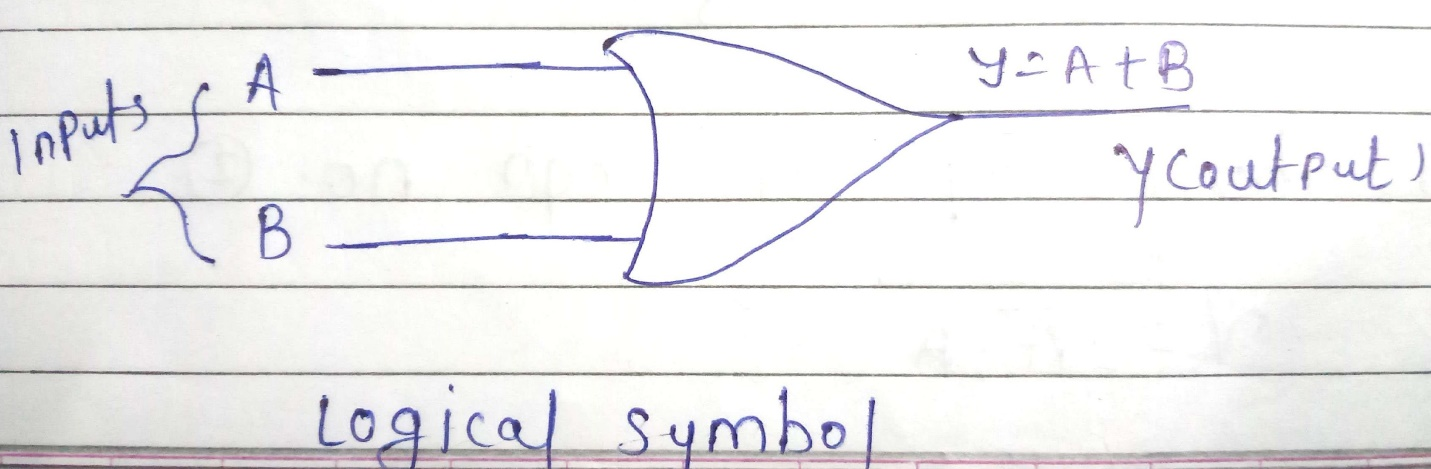 Inputs
A
B
y = A + B
y (output)
Logical symbol